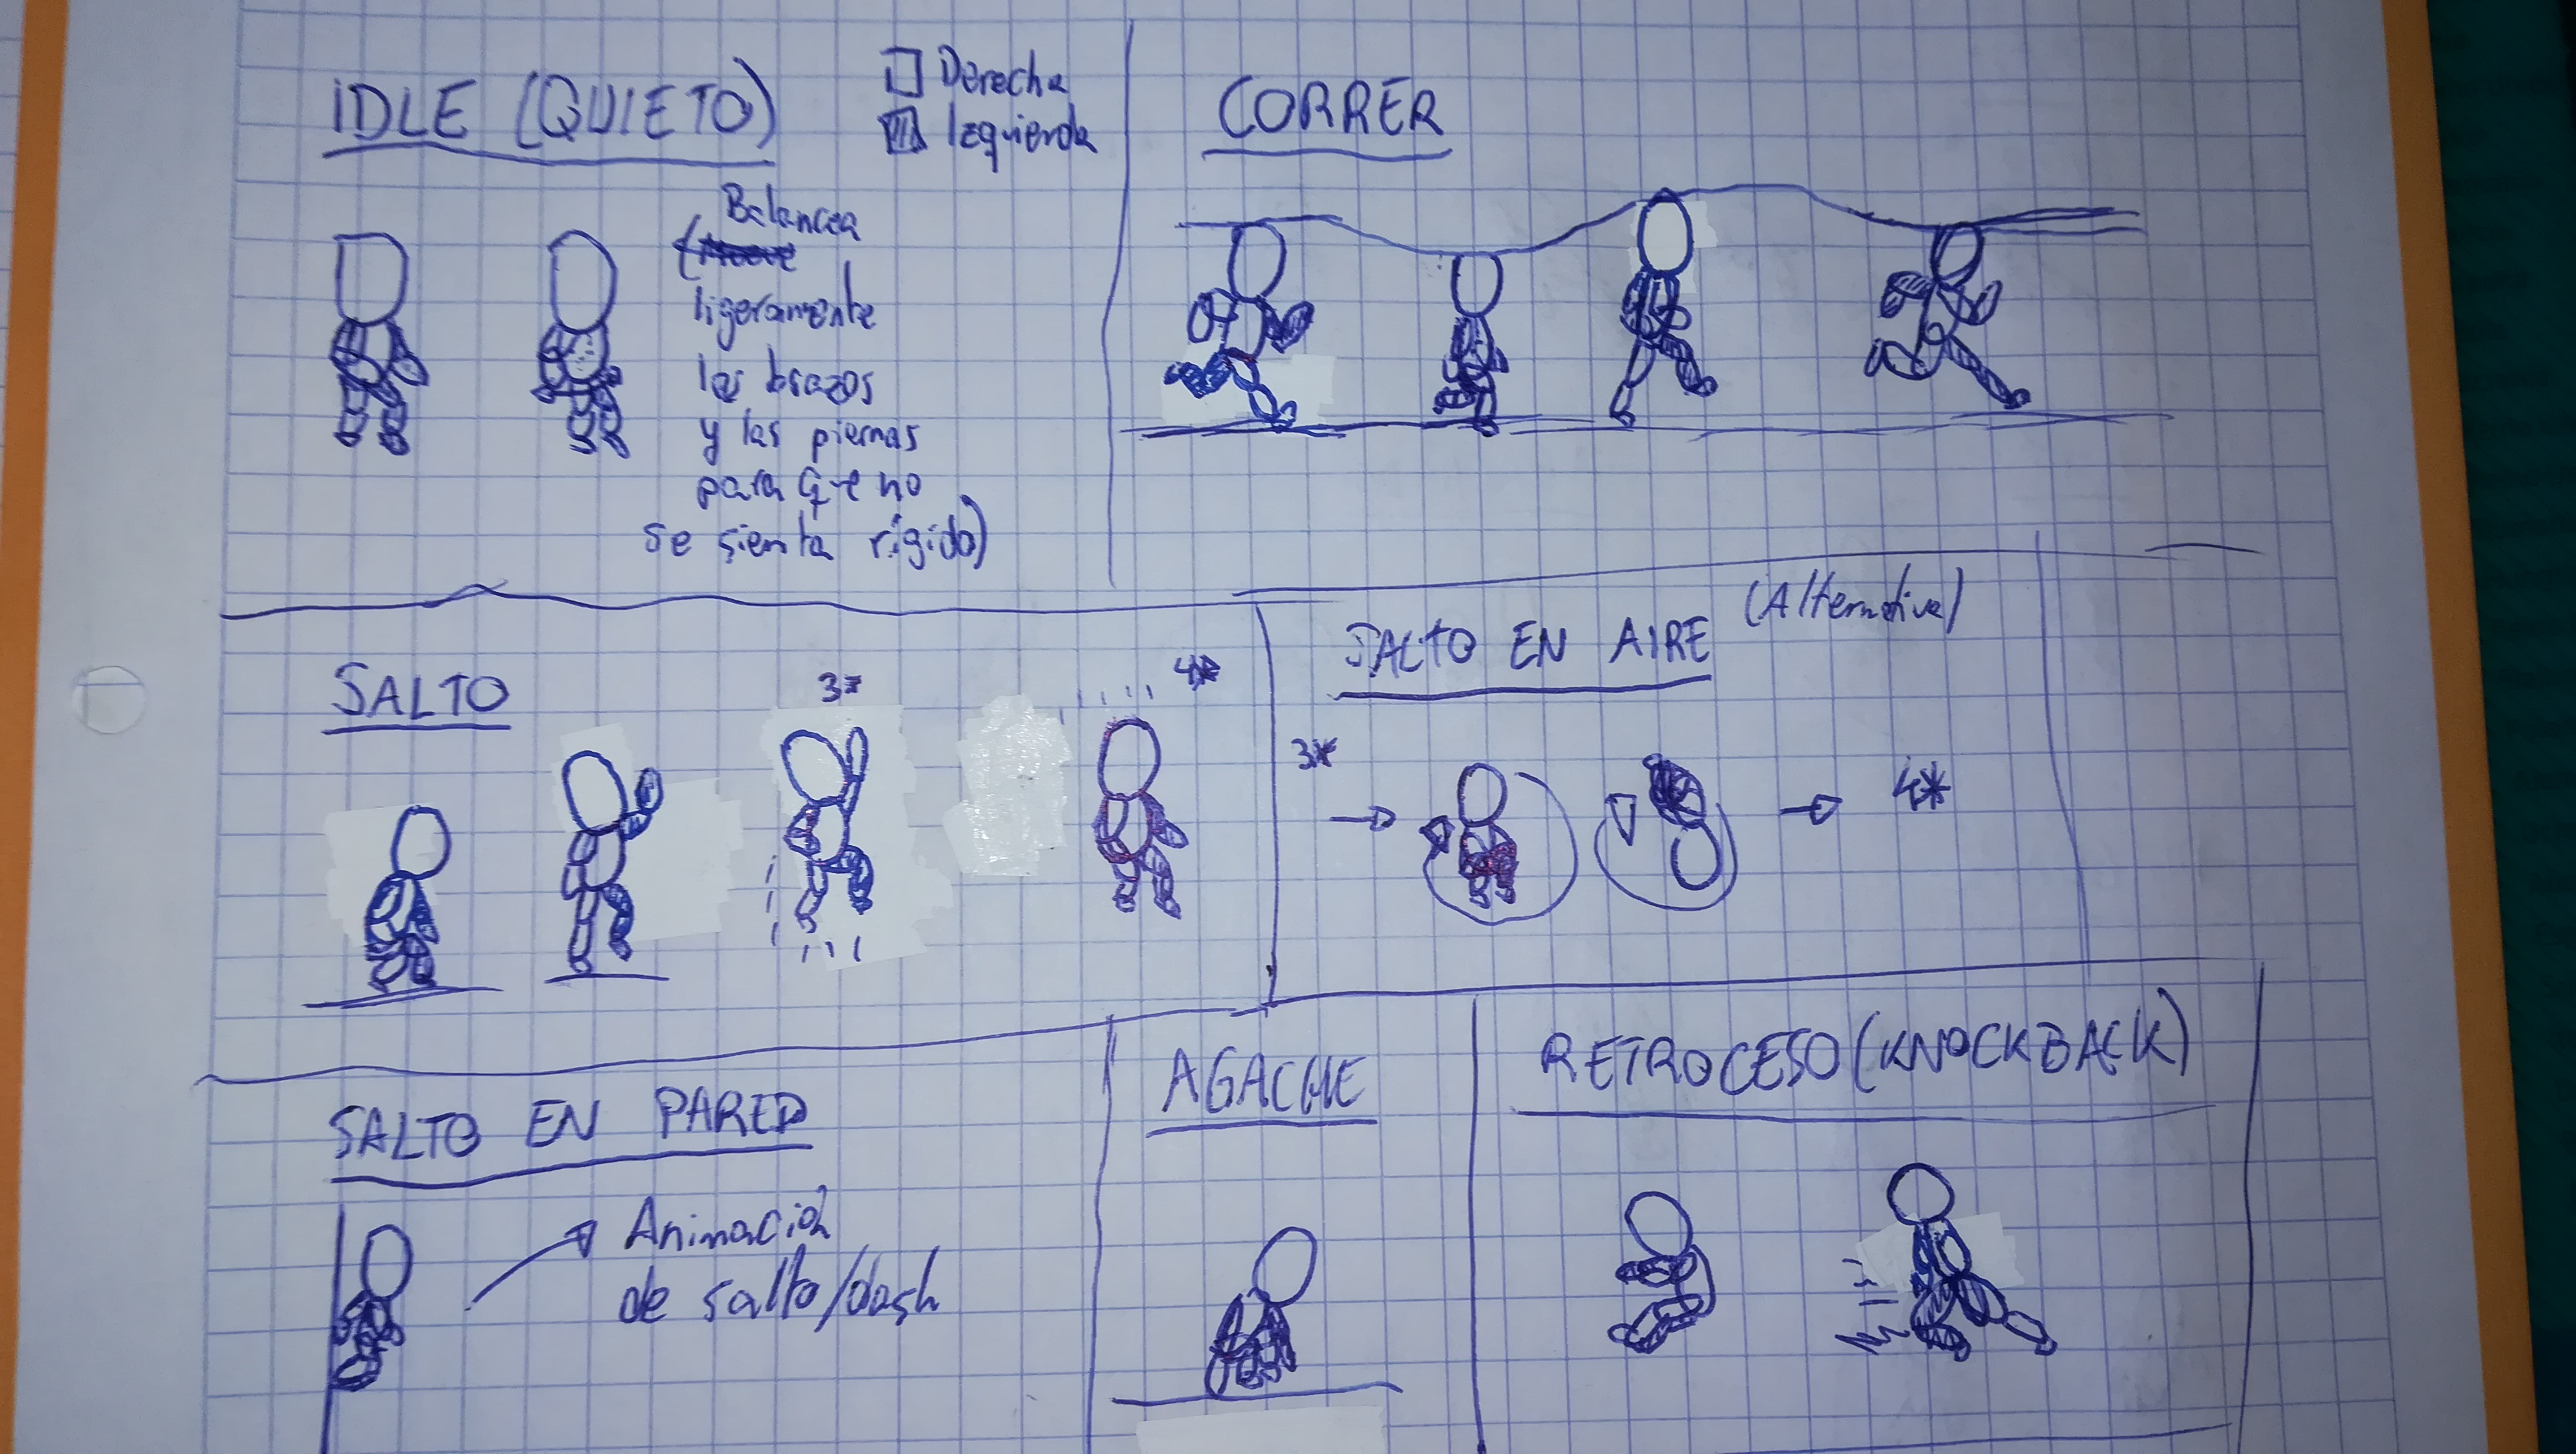 IDLE (QUIETO)
Derecha
Izquierda
Balancea
ligeramente
los brazos
y las piernas
para que no
se sienta rígido)
CORRER
SALTO
3*
4*
SALTO EN AIRE (Alternativa)
3*
4*
SALTO EN PARED
Animación
de salto/dash
AGACHE
RETROCESO (KNOCKBACK)